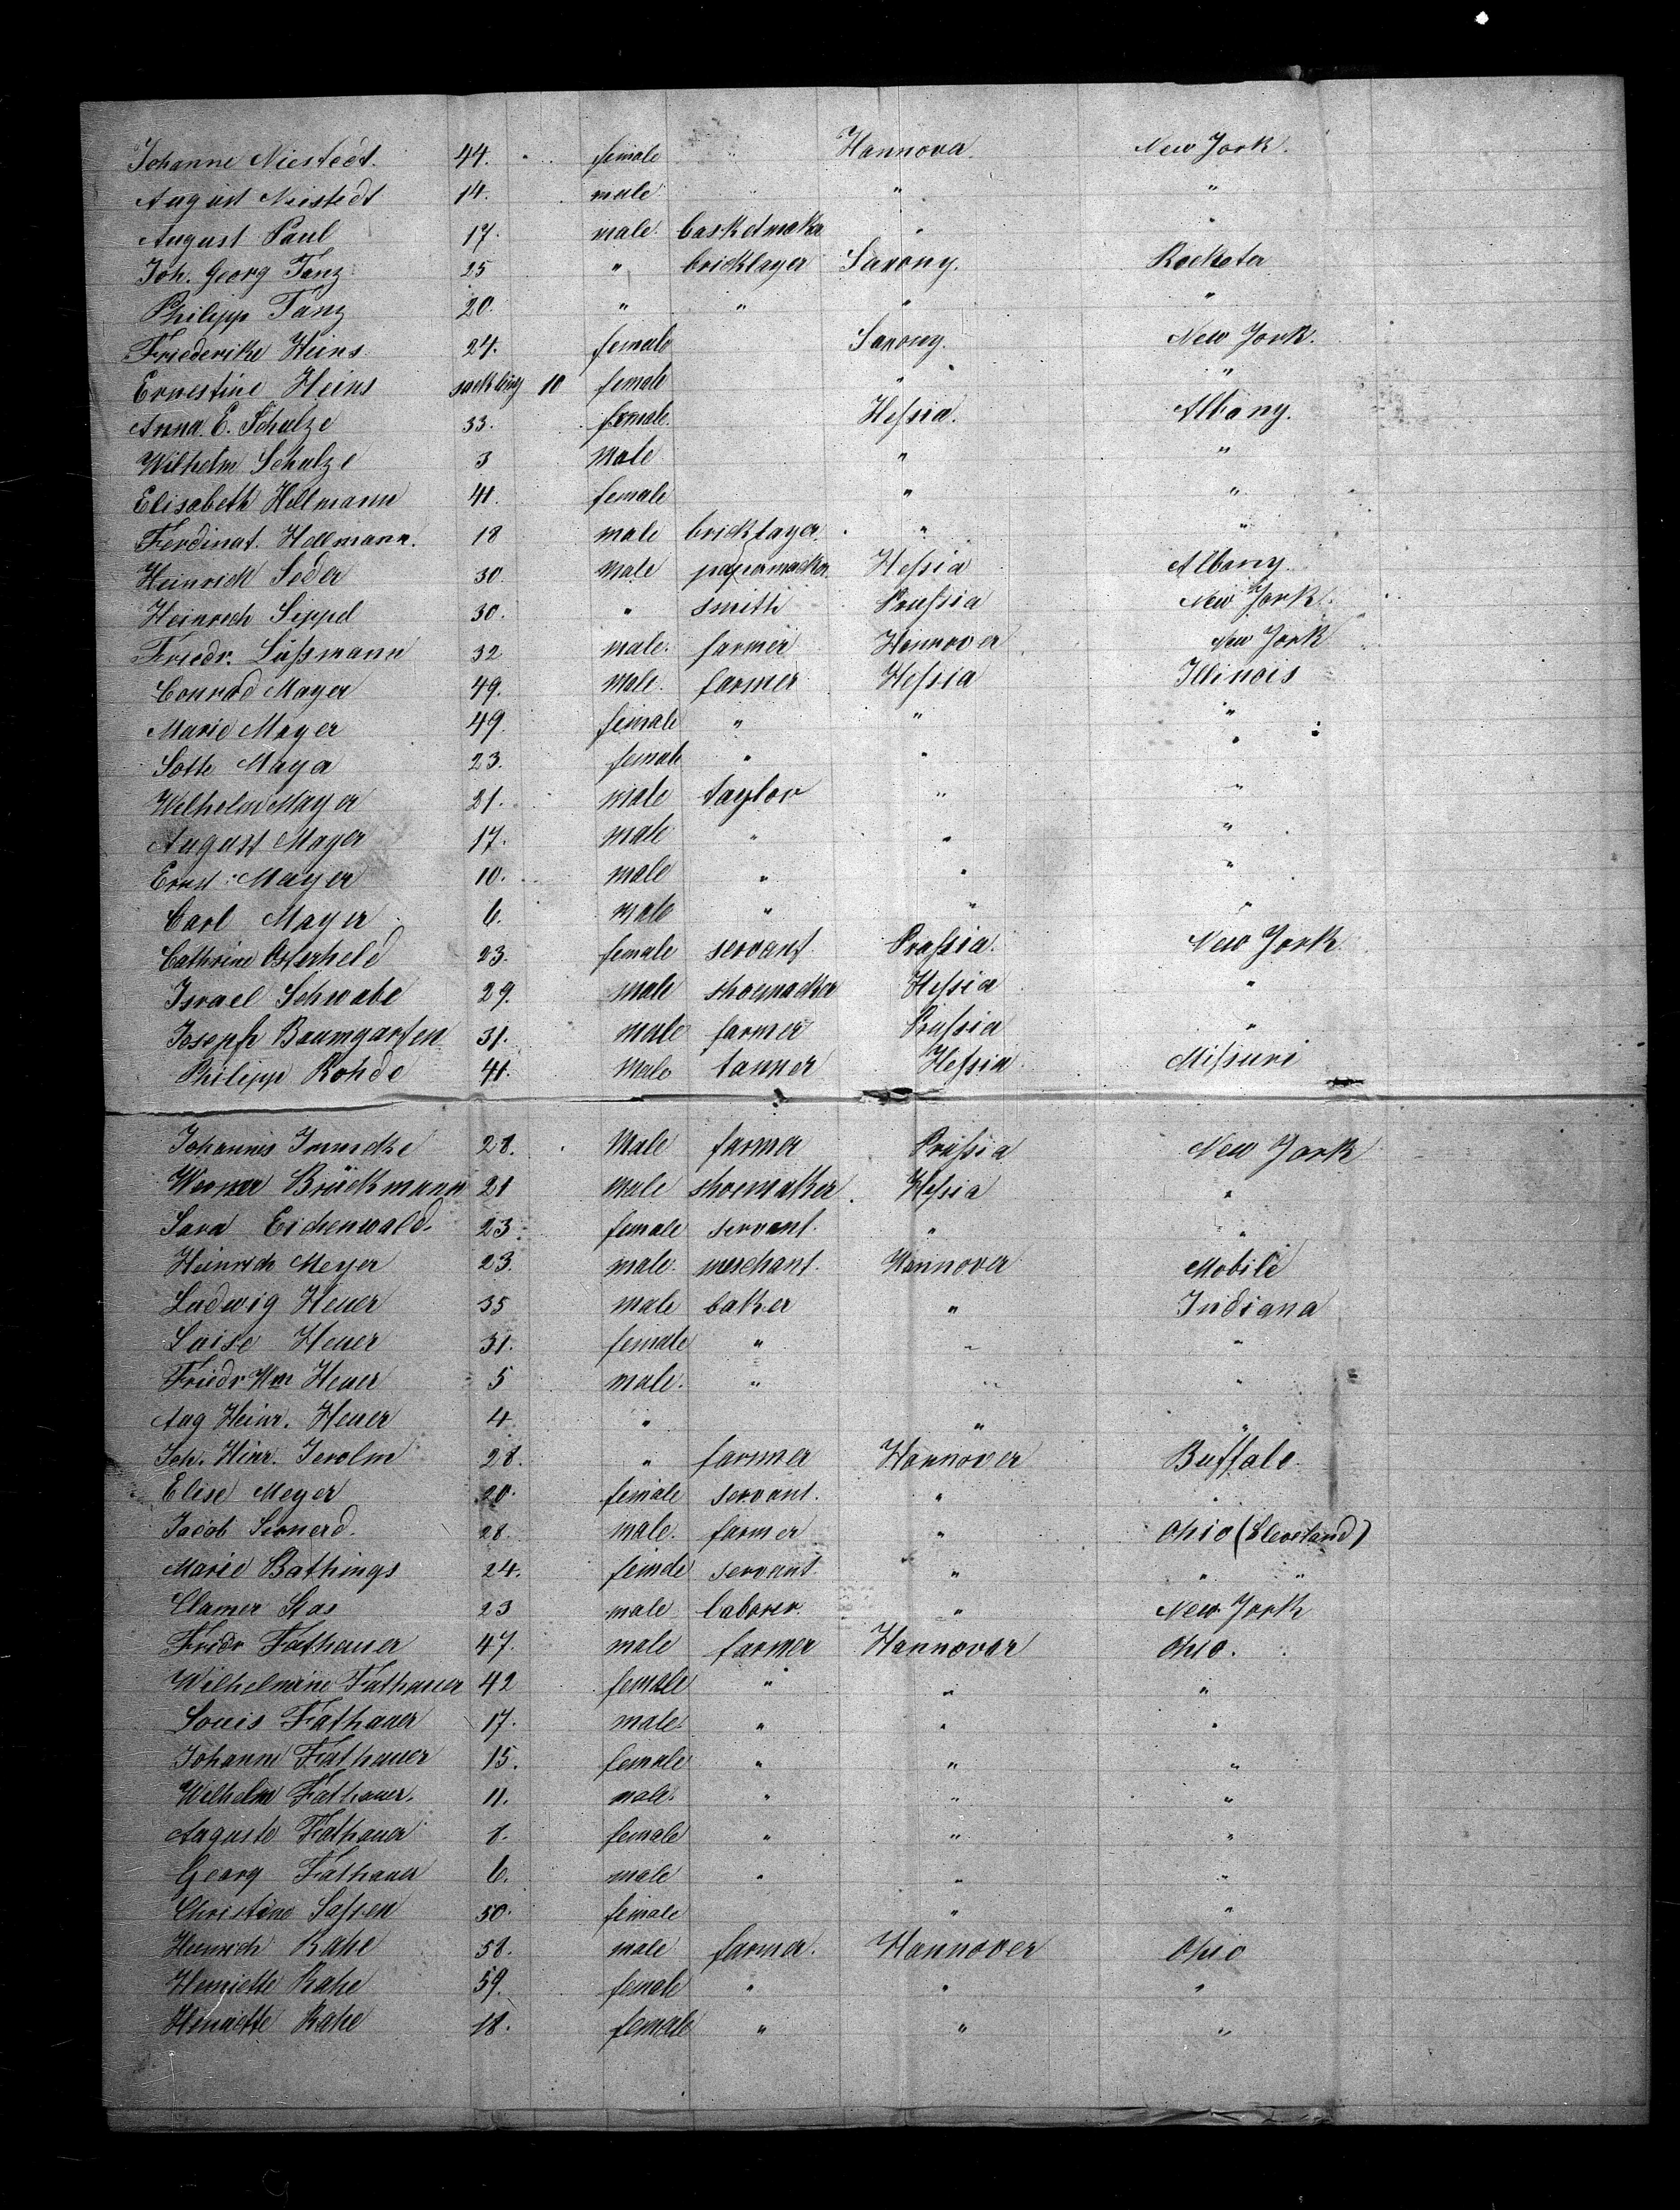 Johanne Niestedt. 44. female " Hannover. New York.
August Niestedt 14. male " " "
August Paul 17. male. basketmaker " "
Joh. Georg Tanz 25 " bricklayer Saxony. Rochester
Philipp Tanz 20. " " " "
Friederike Heins 24. female Saxony. New York.
Ernestine Heins suckling 10 female " "
Anna E. Schulze 33. female. Hessia. Albany.
Wilhelm Schulze 3 Male " "
Elisabeth Hellmann 41. female " "
Ferdinat. Hellmann. 18 male bricklayer. " "
Heinrich Seder 30. Male papermacker Hessia Albany
Heinrich Sippel 30. " smith Prussia New York.
Friedr. Lüssmann 32 male. farmer Hannover New York
Conrad Mayer 49. Male. farmer Hessia Illinois
Marie Mayer 49. female " " "
Lotte Mayer 23. female " " "
Wilhelm Mayer 21. male taylor " "
August Mayer 17. male " " "
Ernst Mayer 10. male " " "
Carl Mayer 6. male " " "
Cathrine Osterheld 23. female servant. Prussia. New York
Israel Schwabe 29. male shoemacker Hessia "
Joseph Baumgarten 31. male farmer Prussia "
Philipp Rohde 41. Male tanner Hessia Missuri
Johannes Immcke 28. Male farmer Prussia New York
Werner Brückmann 21 male shoemaker Hessia "
Sara Eichenwald. 23. female servant. " "
Heinrich Meyer 23. male. merchant. Hannover Mobile
Ludwig Heuer 35 male baker " Indiana
Luise Heuer 31. female " " "
Friedr Wm Heuer 5 male. " " "
Aug Heinr. Heuer 4 " " "
Joh. Hinr. Jerolm 28. " farmer Hannover Buffalo
Elise Meyer 20. female servant. " "
Jacob Sernerd. 28. male. farmer " Ohio (Cleveland)
Marie Bathings 24. female servant. " " "
Clamer Stas 23 male laborer. " New York
Friedr Fathauer 47. male farmer Hannover Ohio.
Wilhelmine Fathauer 42 female " " "
Louis Fathauer 17. male. " " "
Johanne Fathauer 15. female " " "
Wilhelm Fathauer. 11. male. " " "
Auguste Fathauer 8. female " " "
Georg Fathauer 6. male " " "
Christine Lassen 50. female " "
Heinrich Rahe 58. male farmer. Hannover Ohio
Henriette Rahe 59. female " " "
Henriette Rahe 18. female " " "